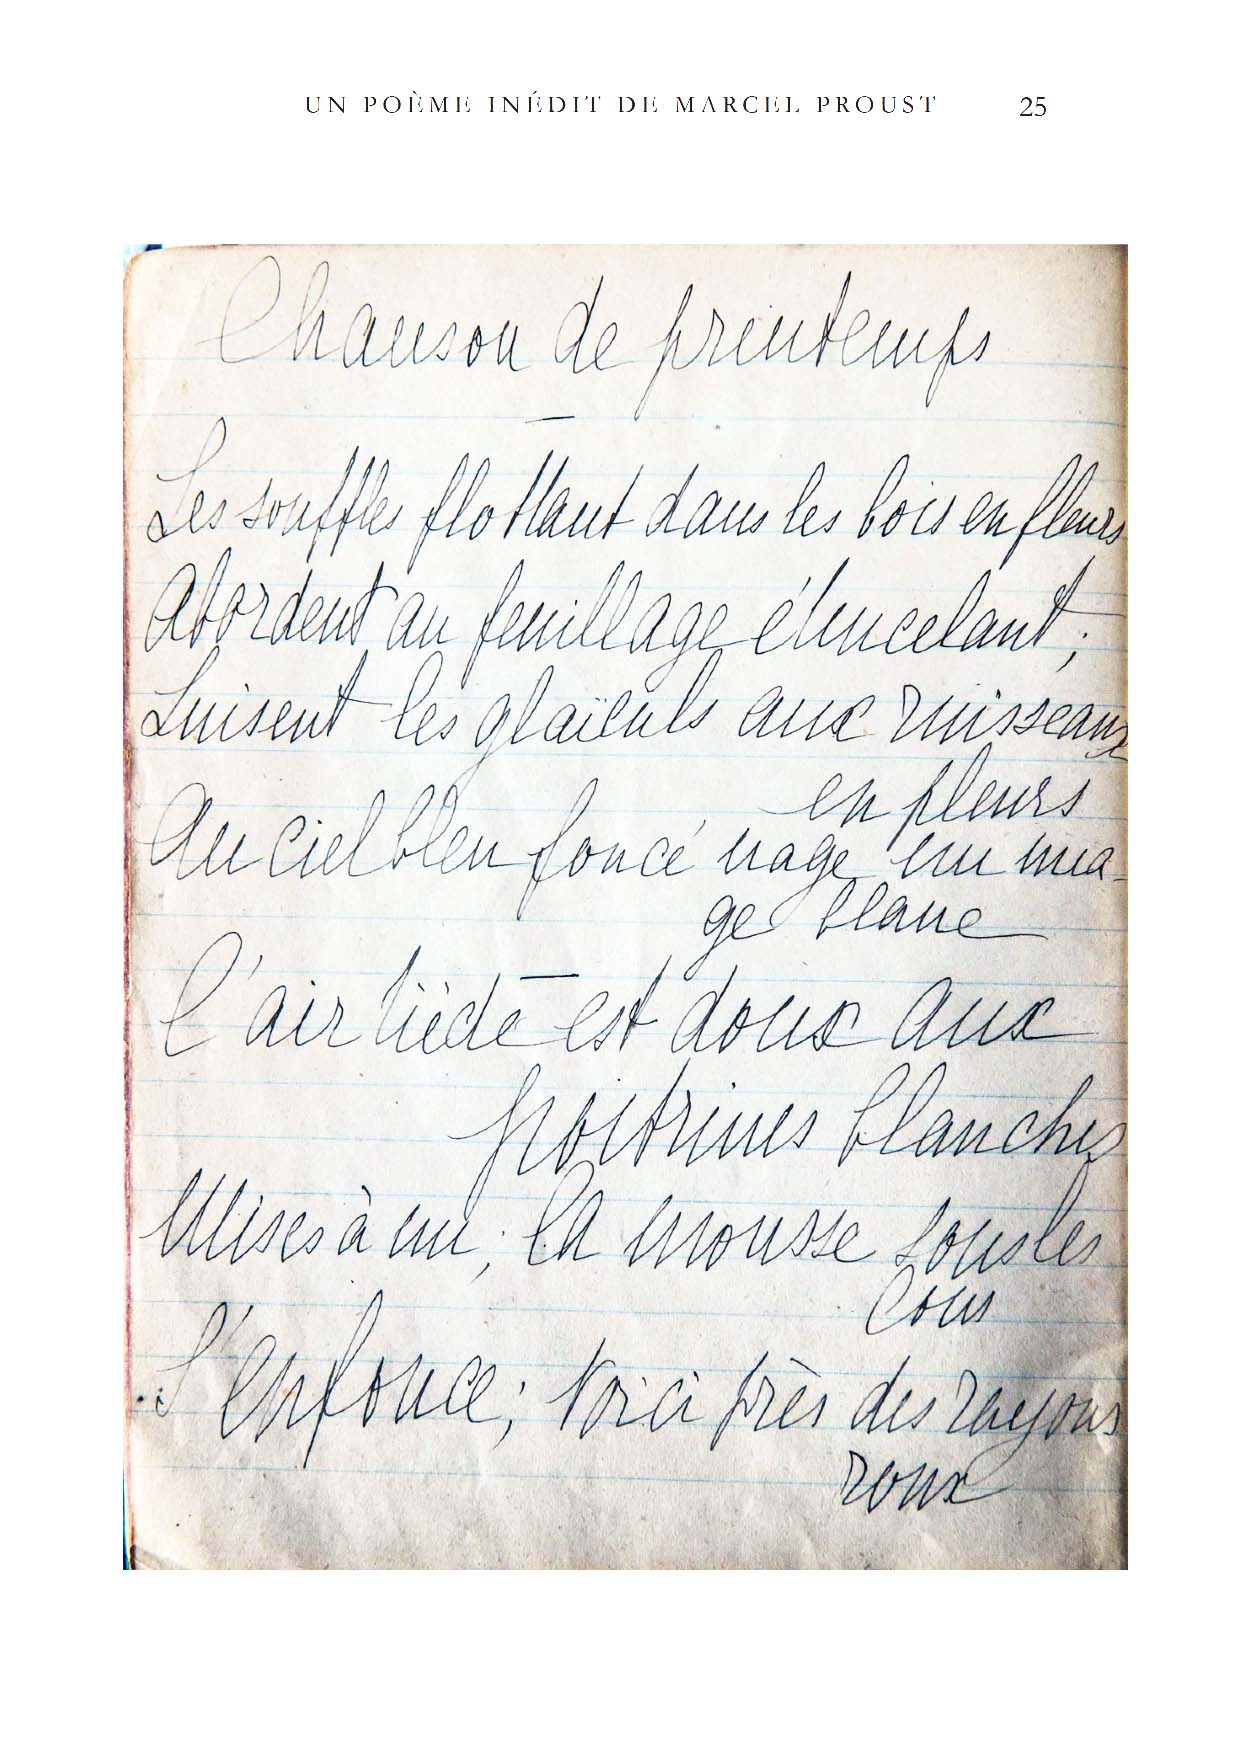 UN POÈME INÉDIT DE MARCEL PROUST 25
Chanson de printemps
Les souffles flottant dans les bois en fleurs
Abordent au feuillage étincelant ;
Luisent les glaïeuls aux ruisseaux
en pleurs
Au ciel bleu foncé nage un nua-
ge blanc
L'air tiède est doux aux
poitrines blanches
Mises à nu ; la mousse sous les
cous
S'enfonce ; voici près des rayons
roux